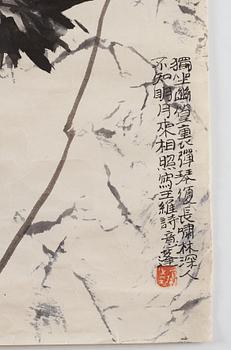 獨坐幽篁裏彈琴復長嘯林深人
不知明月來相照寫王維詩意